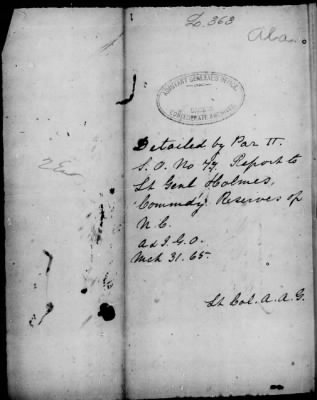 L. 363
Ala.
ADJUTANT GENERAL'S OFFICE
CONFEDERATE ARCHIVES
Detailed by Par II.
S. O. No 74. Report to
Lt Genl Holmes,
Commdg. Reserves of
N. C.
A & I. G. O.
Mch 31. 65.
Lt Col. A. A. G.